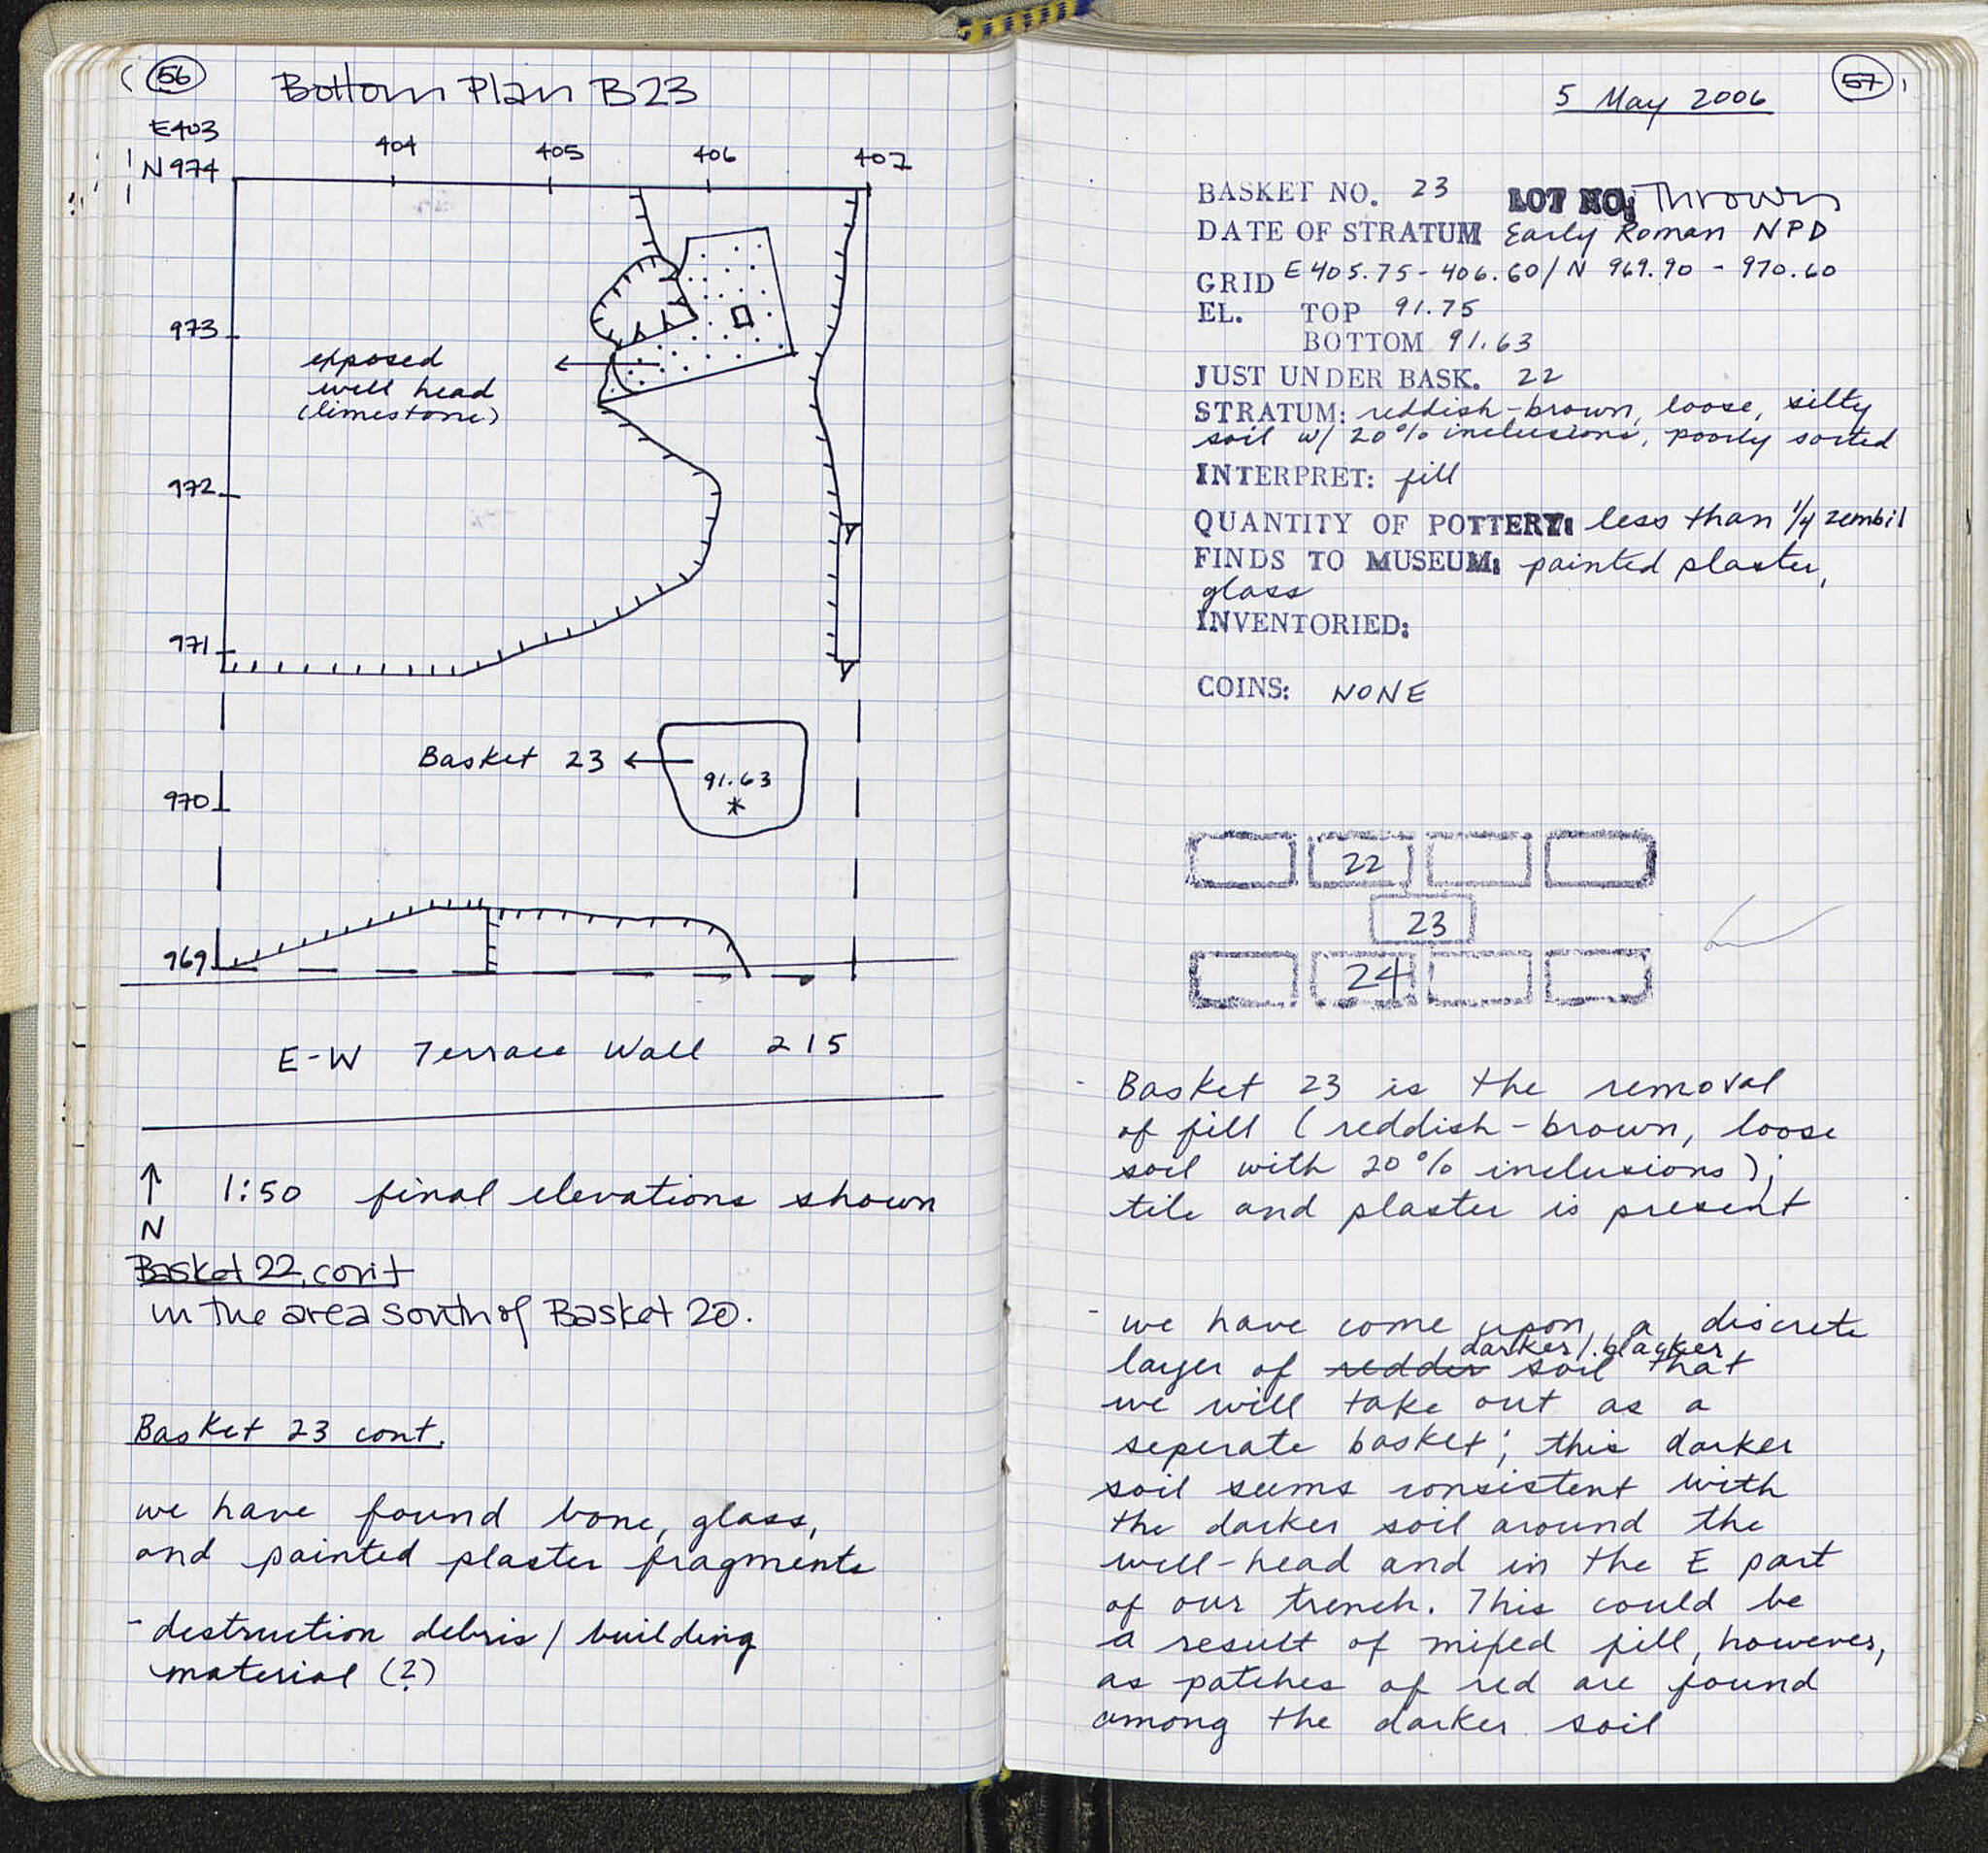 56
Bottom Plan B23
E403
404 405 406 407
N 974
973
exposed
well head
(limestone)
972
971
Basket 23
91.63
*
970
969
E-W Terrace Wall 215
N
1:50 final elevations shown
Basket 22, con't
in the area south of Basket 20.
Basket 23 cont.
we have found bone, glass,
and painted plaster fragments
- destruction debris / building
material (?)
57
5 May 2006
BASKET NO. 23 LOT NO: Thrown
DATE OF STRATUM Early Roman NPD
GRID E 405.75 - 406.60 / N 969.90 - 970.60
EL. TOP 91.75
BOTTOM 91.63
JUST UNDER BASK. 22
STRATUM: reddish-brown, loose, silty
soil w/ 20% inclusions, poorly sorted
INTERPRET: fill
QUANTITY OF POTTERY: less than 1/4 zembil
FINDS TO MUSEUM: painted plaster,
glass
INVENTORIED:
COINS: NONE
22
23
24
- Basket 23 is the removal
of fill (reddish-brown, loose
soil with 20% inclusions);
tile and plaster is present
- we have come upon a discrete
darker/blacker
layer of redder soil that
we will take out as a
seperate basket; this darker
soil seems consistent with
the darker soil around the
well-head and in the E part
of our trench. This could be
a result of mixed fill, however,
as patches of red are found
among the darker soil